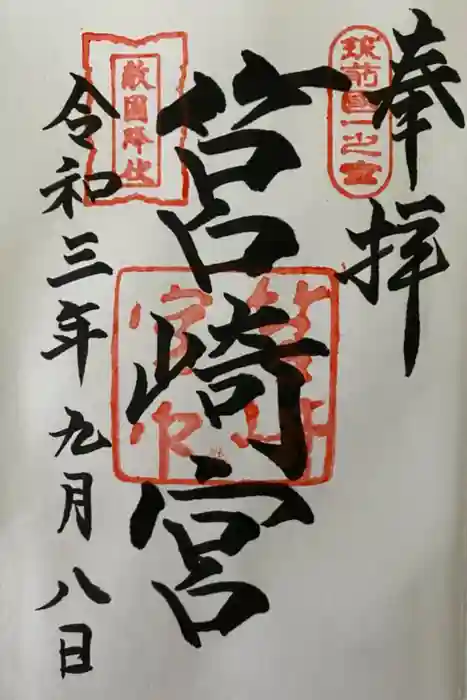 奉拝
筑前國一之宮
筥崎宮
敵国降伏
令和三年九月八日